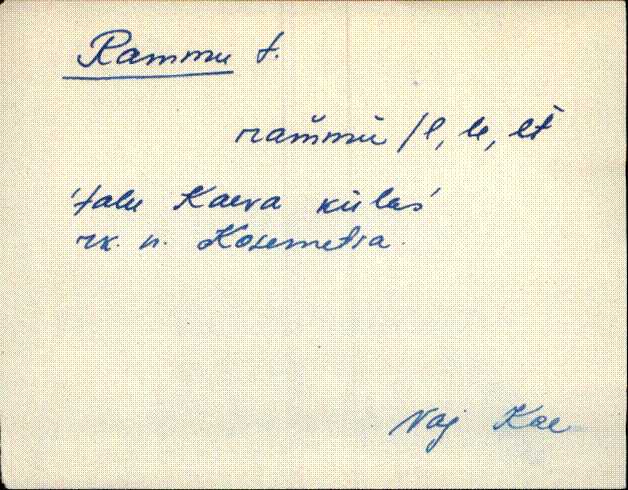 Rammu t.
ram̆mù /l, le, lt
'talu Kaeva külas'
rk. n. Kosemetsa.
Vaj Kae